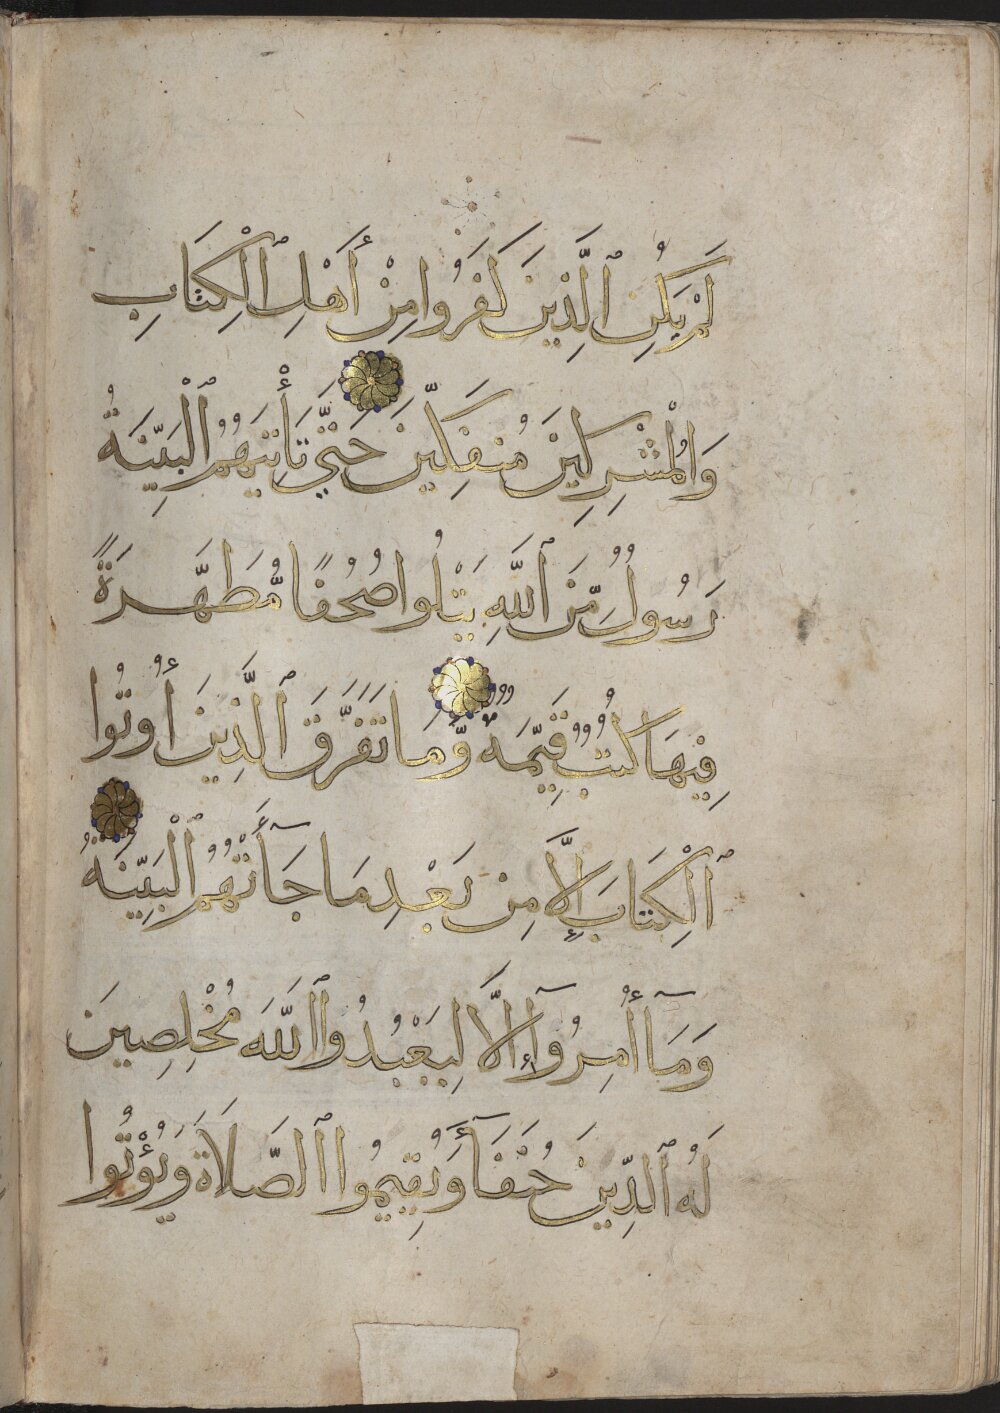 لَمْ يَكُنِ ٱلَّذِينَ كَفَرُوا مِنْ أَهْلِ ٱلْكِتَابِ
وَالْمُشْرِكِينَ مُنفَكِّينَ حَتَّي تَأْتِيَهُمُ ٱلْبَيِّنَةُ
رَسُولٌ مِّنَ ٱللَّهِ يَتْلُوا صُحُفًا مُّطَهَّرَةً
فِيهَا كُتُبٌ قَيِّمَةٌ وَّمَا تَفَرَّقَ ٱلَّذِينَ أُوتُوا
ٱلْكِتَابَ إِلَّا مِن بَعْدِ مَا جَآءَتْهُمُ ٱلْبَيِّنَةُ
وَمَآ أُمِرُوٓا إِلَّا لِيَعْبُدُوا ٱللَّهَ مُخْلِصِينَ
لَهُ ٱلدِّينَ حُنَفَآءَ وَيُقِيمُوا ٱلصَّلَاةَ وَيُؤْتُوا